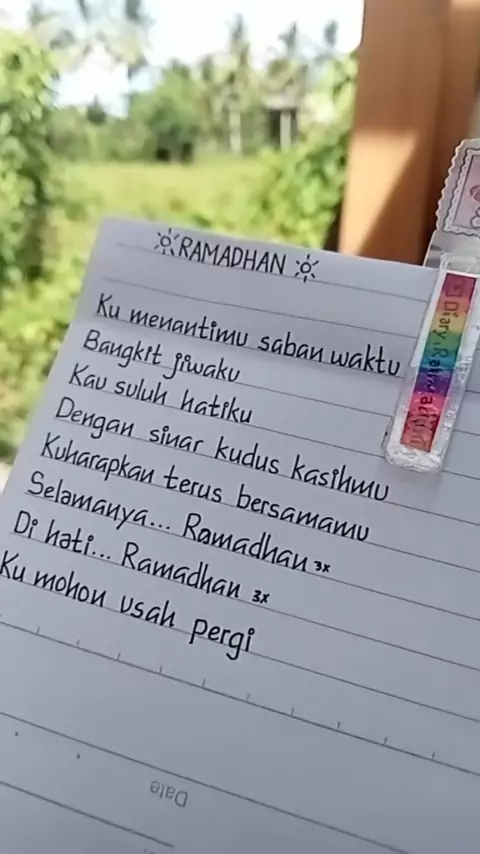 RAMADHAN
Ku menantimu saban waktu
Bangkit jiwaku
Kau suluh hatiku
Dengan sinar kudus kasihmu
Kuharapkan terus bersamamu
Selamanya... Ramadhan 3x
Di hati... Ramadhan 3x
Ku mohon usah pergi
Diary Ramadhan
Date